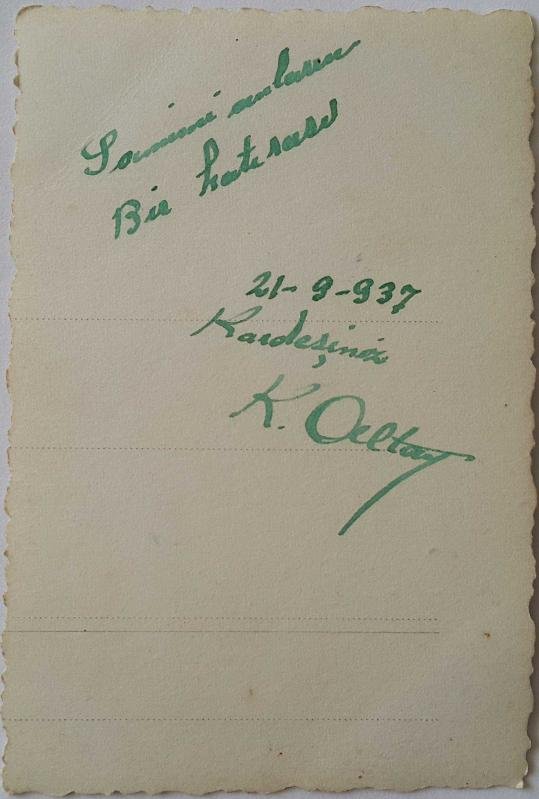 Samimi anların
Bir hatırası
21-9-937
Kardeşiniz
K. Oeltay